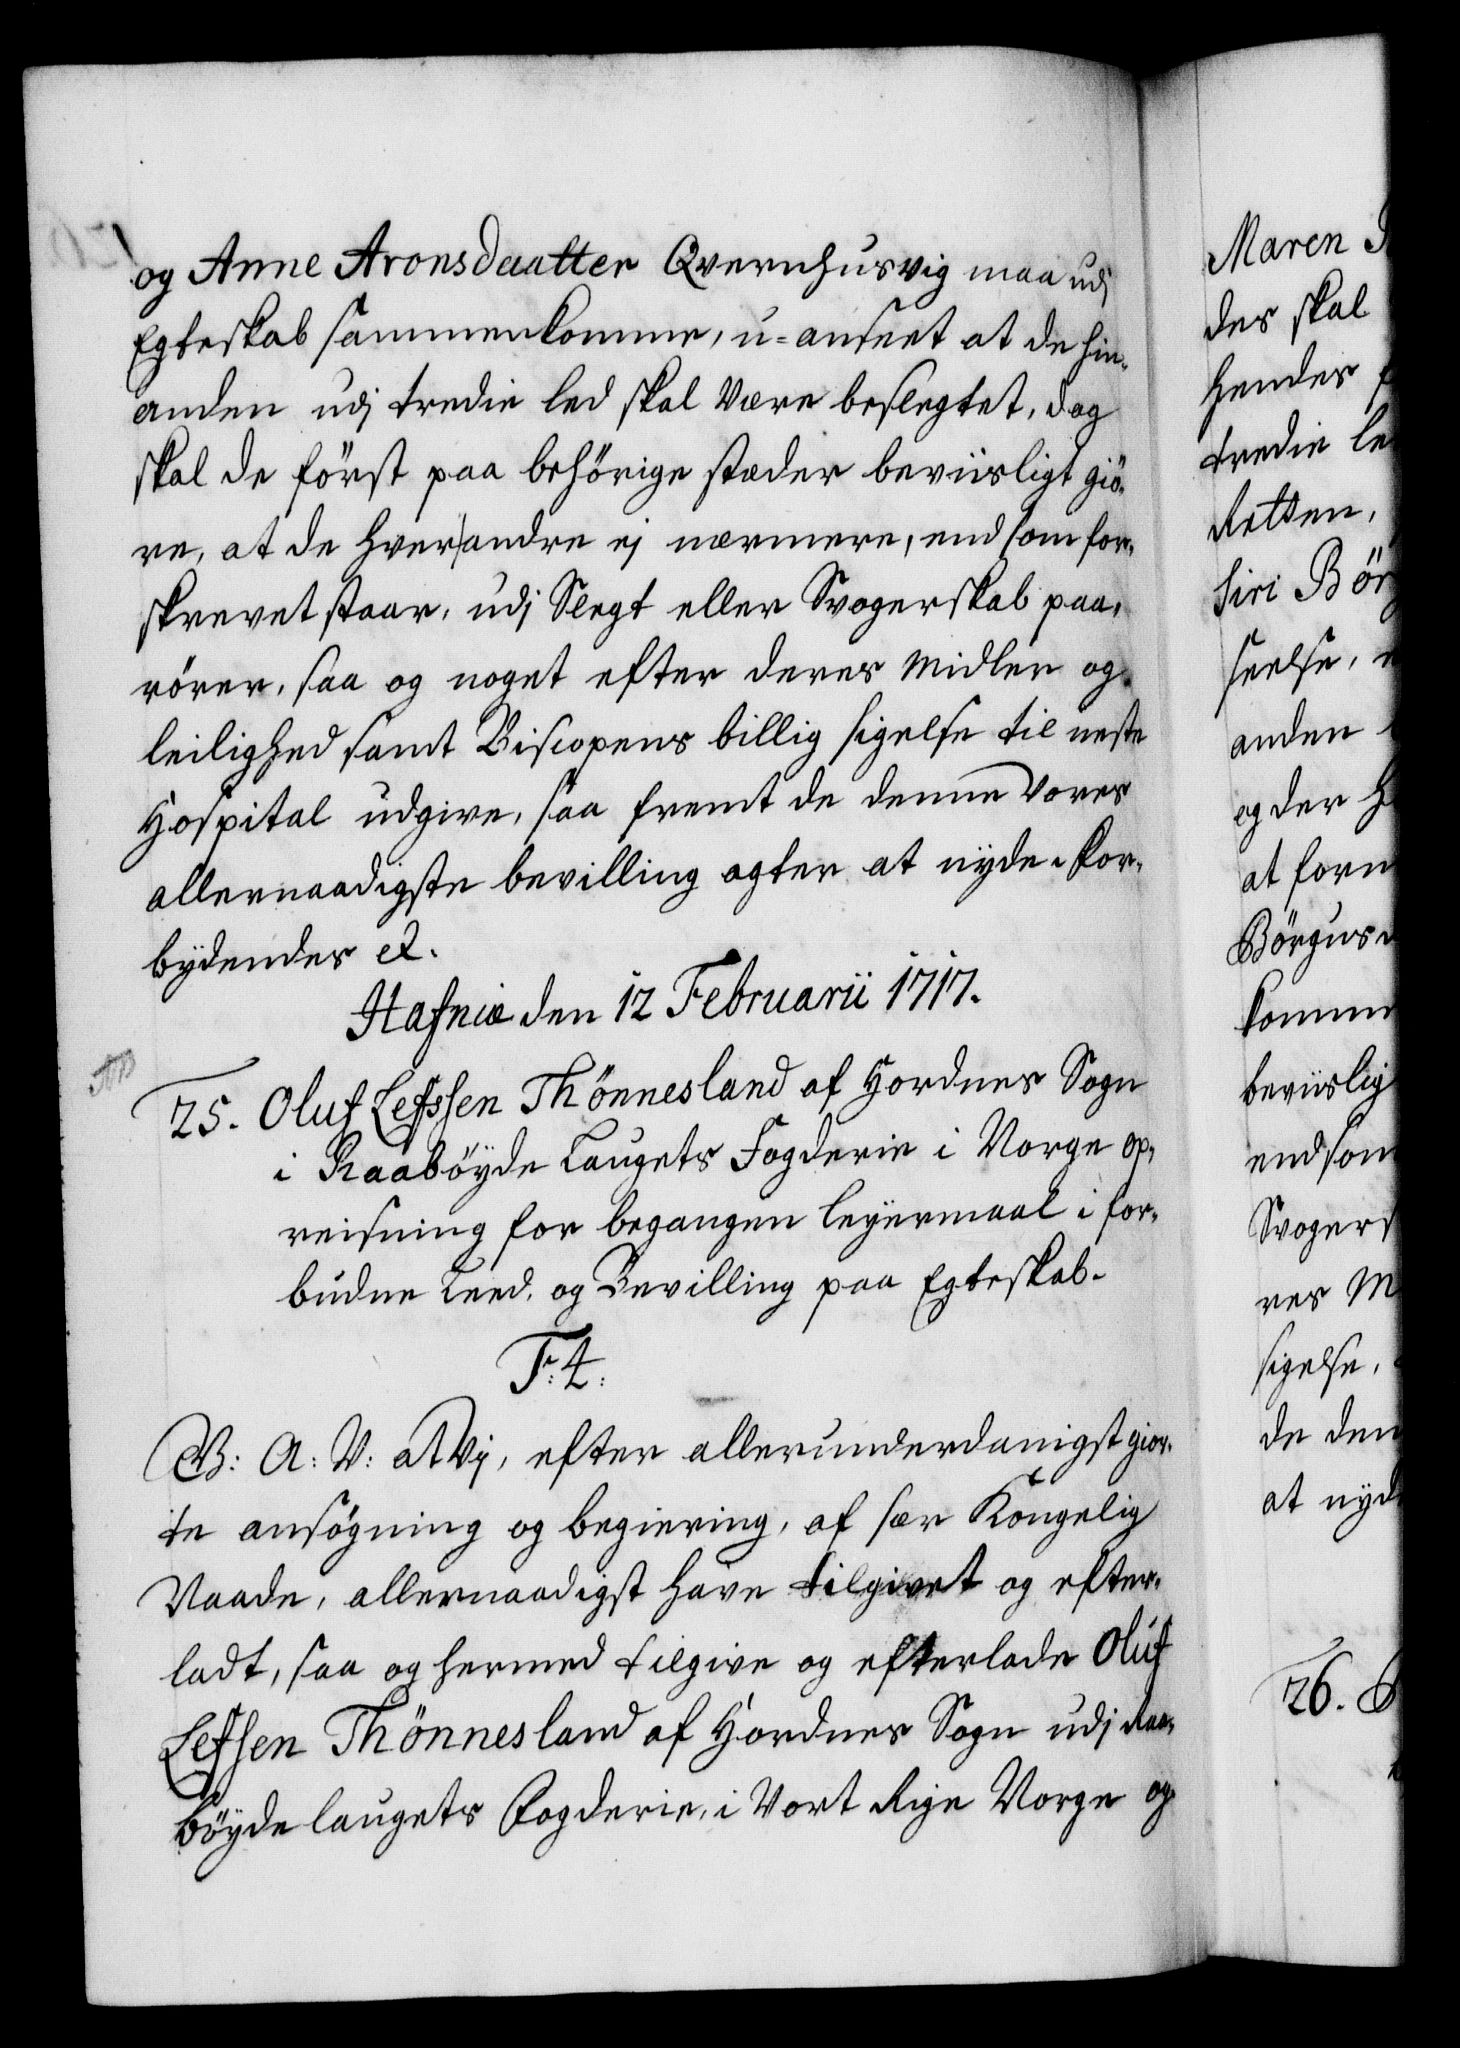 og Anne Aronsdaatter Qvernhusvig maa udj
Egteskab sammenkomme, u-anseet at de hin-
anden udj tredie led skal være beslegtet, dog
skal de först paa behörige stæder beviisligt giö-
re, at de hverandre ej nærmere, end som for-
skrevet staar, udj Slegt eller Svogerskab paa-
rörer, saa og noget efter deres Midler og
leilighed samt Biscopens billig sigelse til neste
Hospital udgive, saa fremt de denne Vores
allernaadigste bevilling agter at nyde. For-
bydendes etc.
Hafniæ den 12 Februarii 1717.
25. Oluf Lefssen Thönnesland af Hordnes Sogn
i Raaböyde Laugets Fogderie i Norge op-
reisning for begangen leyermaal i for-
budne Leed, og Bevilling paa Egteskab.
F: 4.
G: A: V: at Vj, efter allerunderdanigst gior-
te ansögning og begiering, af sær Kongelig
Naade, allernaadigst have tilgivet og efter-
ladt, saa og hermed tilgive og efterlade Oluf
Lefsen Thönnesland af Hordnes Sogn udj Raa-
böyde laugets Fogderie, i Vort Rige Norge og
Maren
des skal
hendes
tredie le
Retten,
Siri Börg
seelse,
anden
og der
at forn
Börgus
komme
beviislig
end som
Svogers
res M
sigelse,
de den
at nyd
26.